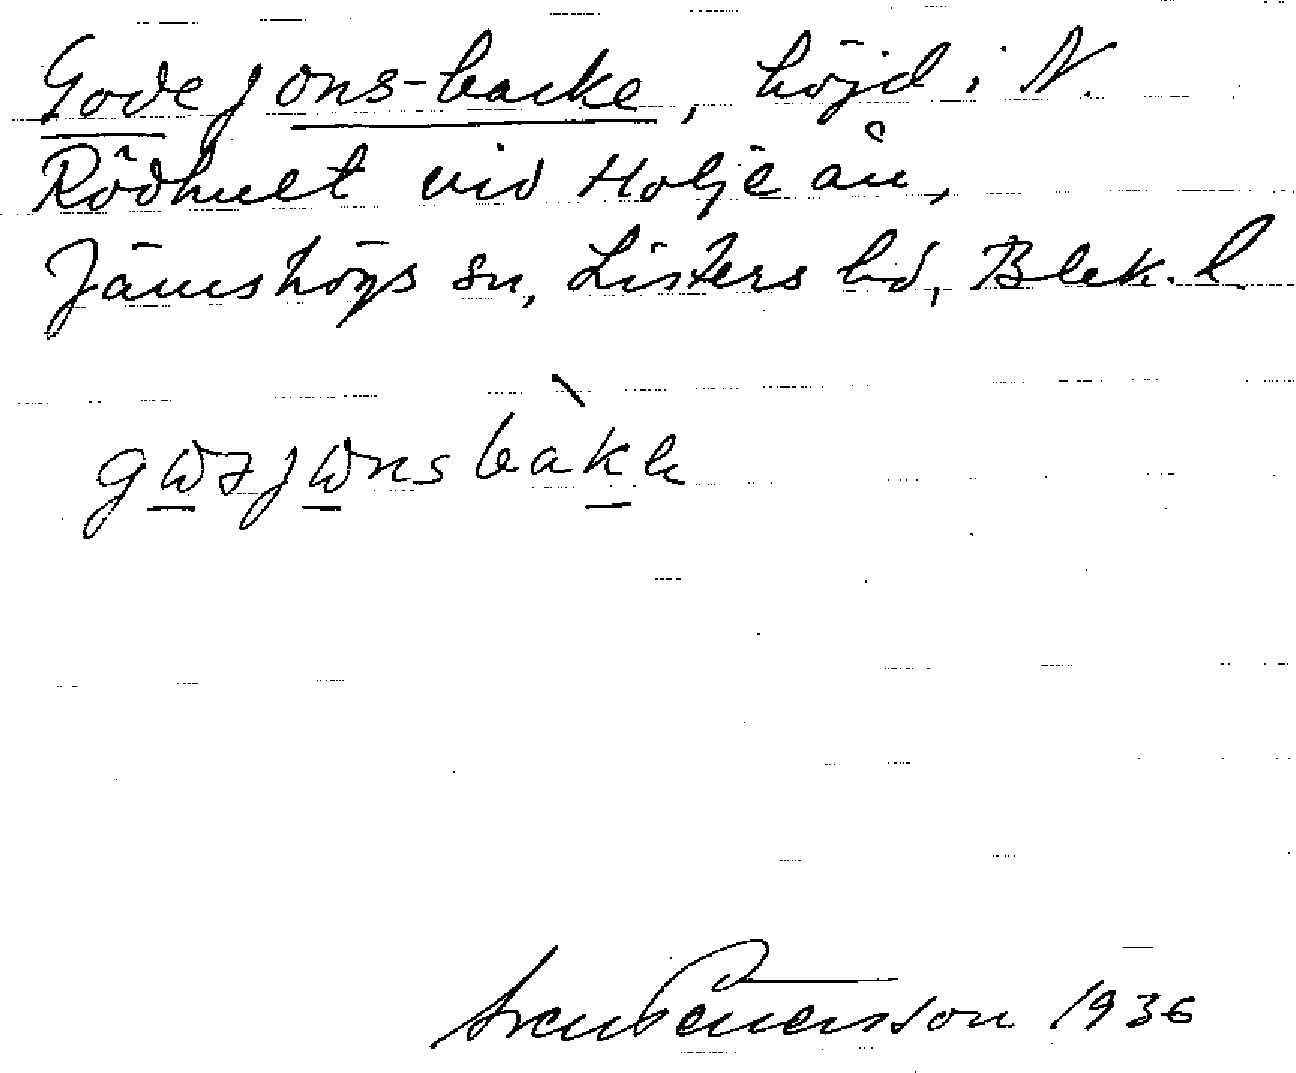 Gode jons-backe, höjd i N.
Rödhult vid Holje ån,
Jämshögs sn, Listers hd, Blek. l.
Sven Benersson 1936